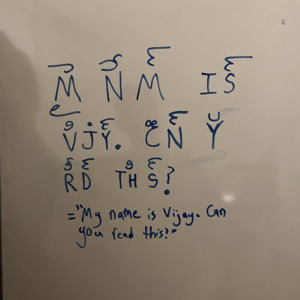 M NM IS
VJY. CN Y
RD THS?
="My name is Vijay. Can
you read this?"